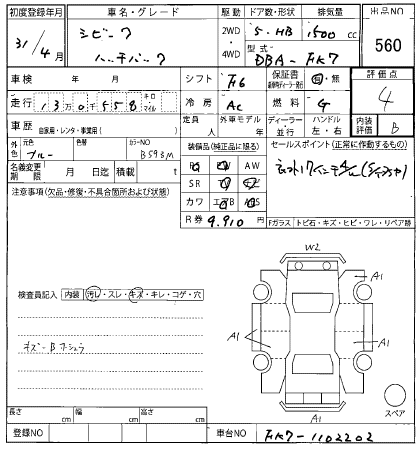 初度登録年月 車名・グレード 駆動 ドア数・形状 排気量 出品NO
31/4月 シビック 2WD 5・HB 1500 cc 560
ハッチバック 4WD 型式 DBA-FK7
車検 年 月 シフト F6 保証書 有・無 評価点
走行 13万0千558 キロ マイル 冷房 AC 燃料 G 4
車歴 自家用・レンタ・事業用( ) 定員 人 外車モデル 年 ディーラー 並行 ハンドル 左・右 内装評価 B
外色 元色 ブルー 色替 カラーNO B593M 装備品(純正品に限る) セールスポイント(正常に作動するもの)
名義変更期限 月 日迄 積載 t AW
注意事項(欠品・修復・不具合箇所および状態) SR
カワ
R券 9.910 円 Fガラス トビ石・キズ・ヒビ・ワレ・リペア跡
W2
A1
検査員記入 内装 汚レ・スレ・キズ・キレ・コゲ・穴
A1 A1
スペア
A1
長さ cm 幅 cm 高さ cm
登録NO 車台NO FK7-1102202